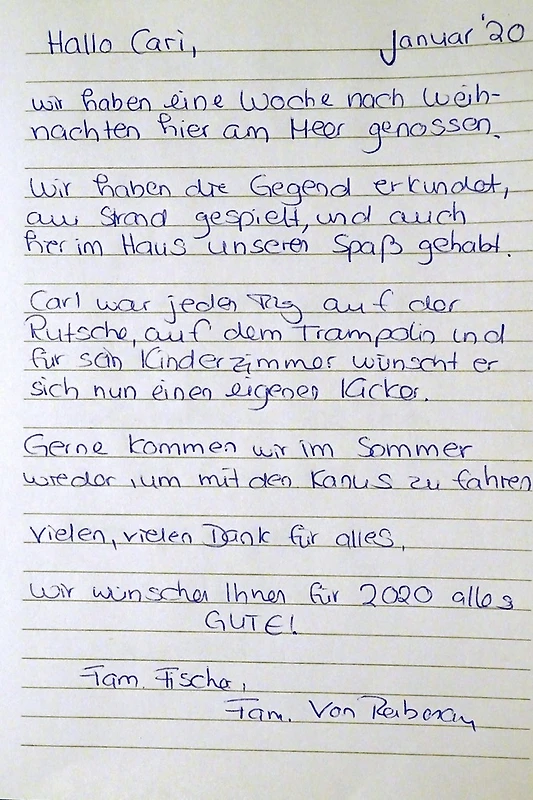 Hallo Cari, Januar '20
wir haben eine Woche nach Weih-
nachten hier am Meer genossen.
Wir haben die Gegend erkundet,
am Strand gespielt, und auch
hier im Haus unseren Spaß gehabt.
Carl war jeden Tag auf der
Rutsche, auf dem Trampolin und
für sein Kinderzimmer wünscht er
sich nun einen eigenen Kicker.
Gerne kommen wir im Sommer
wieder, um mit den Kanus zu fahren
Vielen, vielen Dank für alles,
Wir wünschen Ihnen für 2020 alles
GUTE!
Fam. Fischer,
Fam. Von